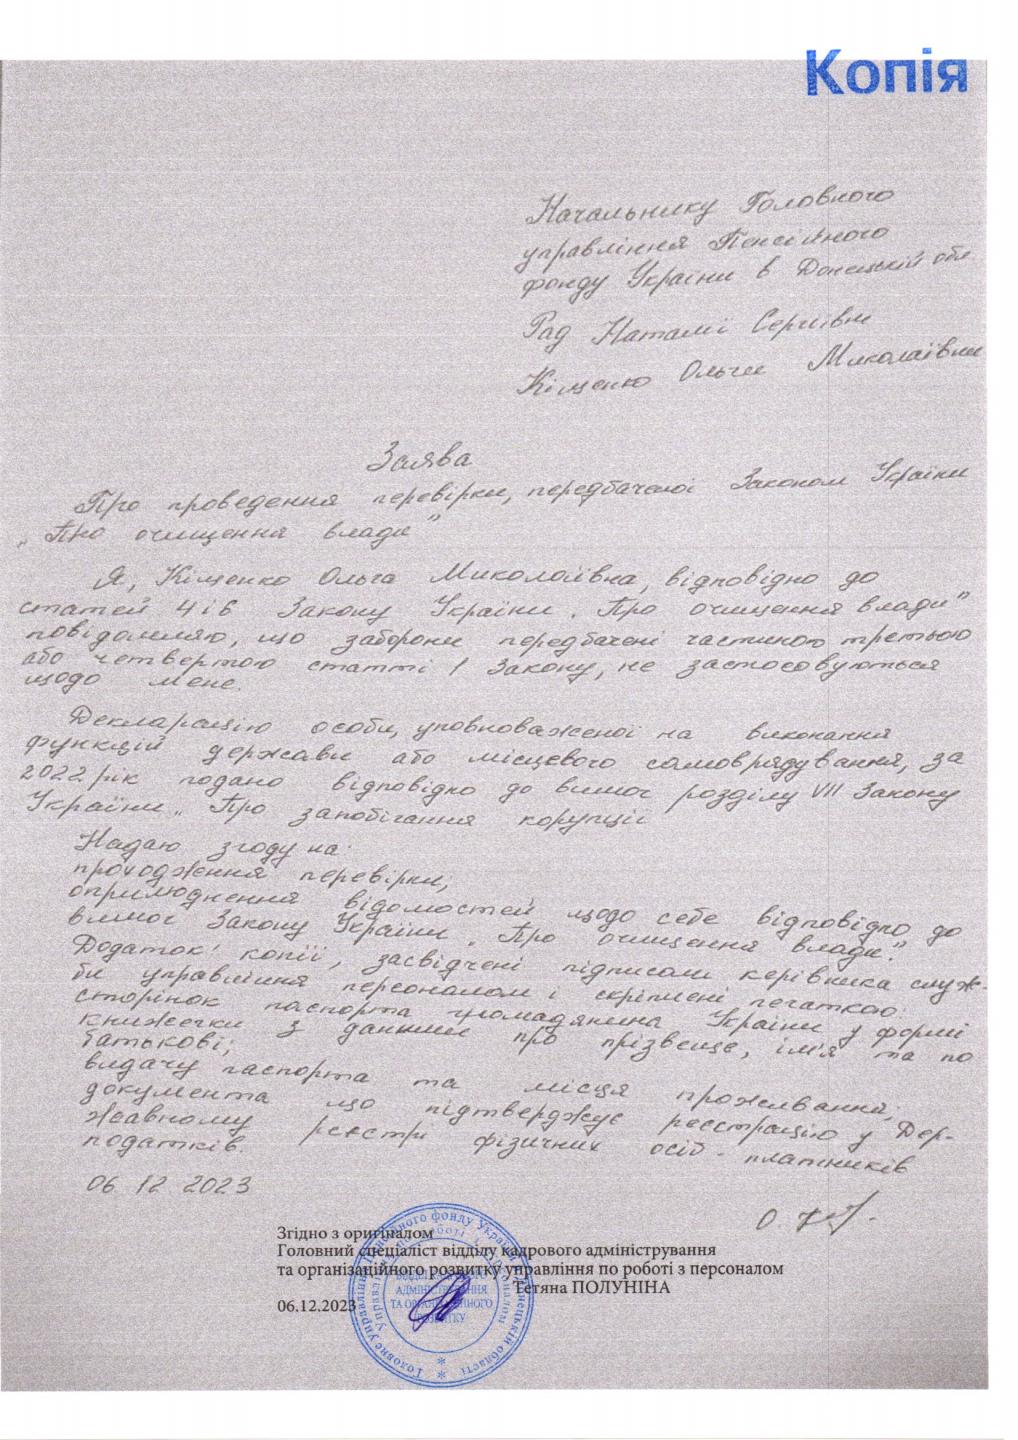 Копія
Начальнику Головного
управління Пенсійного
фонду України в Донецькій обл.
Рад Наталії Сергіївні
Кіщенко Ольги Миколаївни
Заява
Про проведення перевірки, передбаченої Законом України
„Про очищення влади"
Я, Кіщенко Ольга Миколаївна, відповідно до
статей 4 і 6 Закону України „Про очищення влади"
повідомляю, що заборони передбачені частиною третьою
або четвертою статті 1 Закону, не застосовуються
щодо мене.
Декларацію особи, уповноваженої на виконання
функцій держави або місцевого самоврядування, за
2022 рік подано відповідно до вимог розділу VII Закону
України „Про запобігання корупції
Надаю згоду на:
проходження перевірки;
оприлюднення відомостей щодо себе відповідно до
вимог Закону України „Про очищення влади".
Додаток: копії, засвідчені підписом керівника служ-
би управління персоналом і скріплені печаткою:
сторінок паспорта громадянина України у формі
книжечки з даними про прізвеще, ім'я та по
батькові;
видачу паспорта та місця проживання;
документа що підтверджує реєстрацію у Дер-
жавному реєстрі фізичних осіб - платників
податків.
06 12 2023
Згідно з оригіналом
Головний спеціаліст відділу кадрового адміністрування
та організаційного розвитку управління по роботі з персоналом
Тетяна ПОЛУНІНА
06.12.2023
Головне управління Пенсійного фонду України в Донецькій області
Управління по роботі з персоналом
ВІДДІЛ КАДРОВОГО
АДМІНІСТРУВАННЯ
ТА ОРГАНІЗАЦІЙНОГО
РОЗВИТКУ